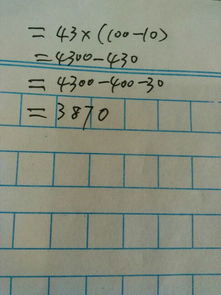 =43×(100-10)
=4300-430
=4300-400-30
=3870